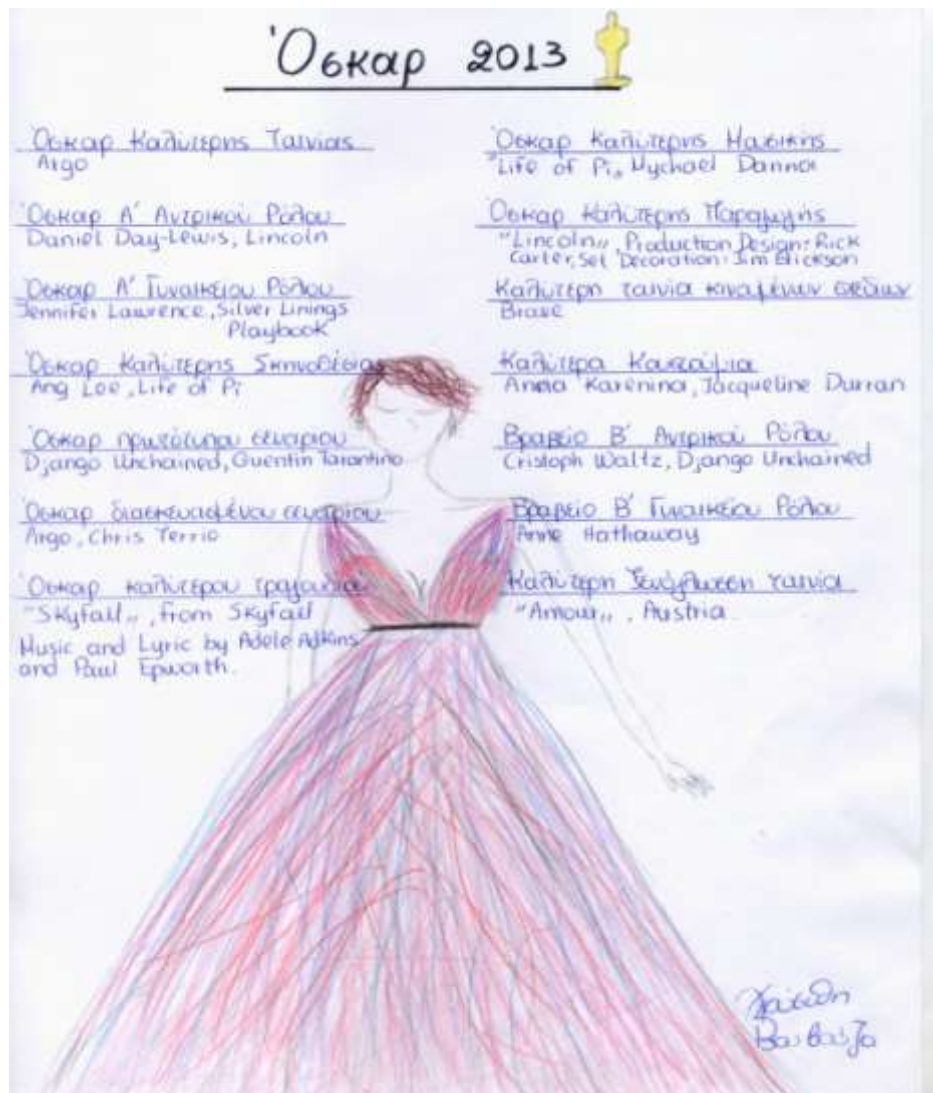 Όσκαρ 2013
Όσκαρ Καλύτερης Ταινίας
Argo
Όσκαρ Α' Αντρικού Ρόλου
Daniel Day-Lewis, Lincoln
Όσκαρ Α' Γυναικείου Ρόλου
Jennifer Lawrence, Silver Linings
Playbook
Όσκαρ Καλύτερης Σκηνοθεσίας
Ang Lee, Life of Pi
Όσκαρ πρωτότυπου σεναρίου
Django Unchained, Quentin Tarantino
Όσκαρ διασκευασμένου σεναρίου
Argo, Chris Terrio
Όσκαρ καλύτερου τραγουδιού
"Skyfall„, from Skyfall
Music and Lyric by Adele Adkins
and Paul Epworth.
Όσκαρ Καλύτερης Μουσικής
"Life of Pi„ Mychael Danna
Όσκαρ Καλύτερης Παραγωγής
"Lincoln„, Production Design: Rick
Carter, Set Decoration: Jim Erickson
Καλύτερη ταινία κινουμένων σχεδίων
Brave
Καλύτερα Κουστούμια
Anna Karenina, Jacqueline Durran
Βραβείο Β' Αντρικού Ρόλου
Cristoph Waltz, Django Unchained
Βραβείο Β' Γυναικείου Ρόλου
Anne Hathaway
Καλύτερη ξενόγλωσση ταινία
"Amour„, Austria